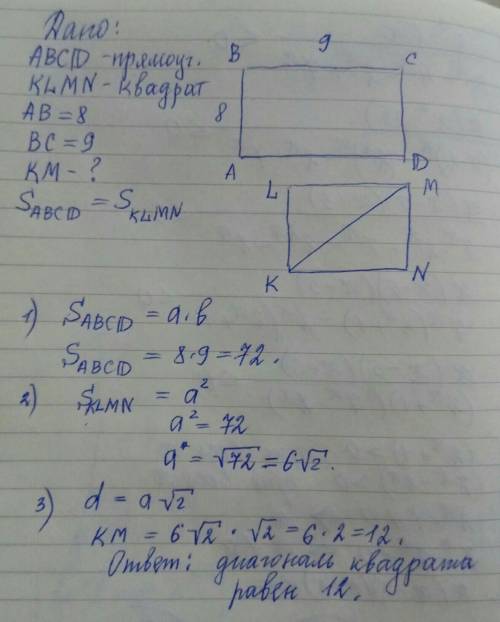 Дано:
ABCD - прямоуг.
KLMN - квадрат
AB = 8
BC = 9
KM - ?
S ABCD = S KLMN
B 9 C
8
A D
L M
K N
1) S ABCD = a · b
S ABCD = 8 · 9 = 72.
2) S KLMN = a²
a² = 72
a = √72 = 6√2.
3) d = a√2
KM = 6√2 · √2 = 6 · 2 = 12.
Ответ: диагональ квадрата
равен 12.